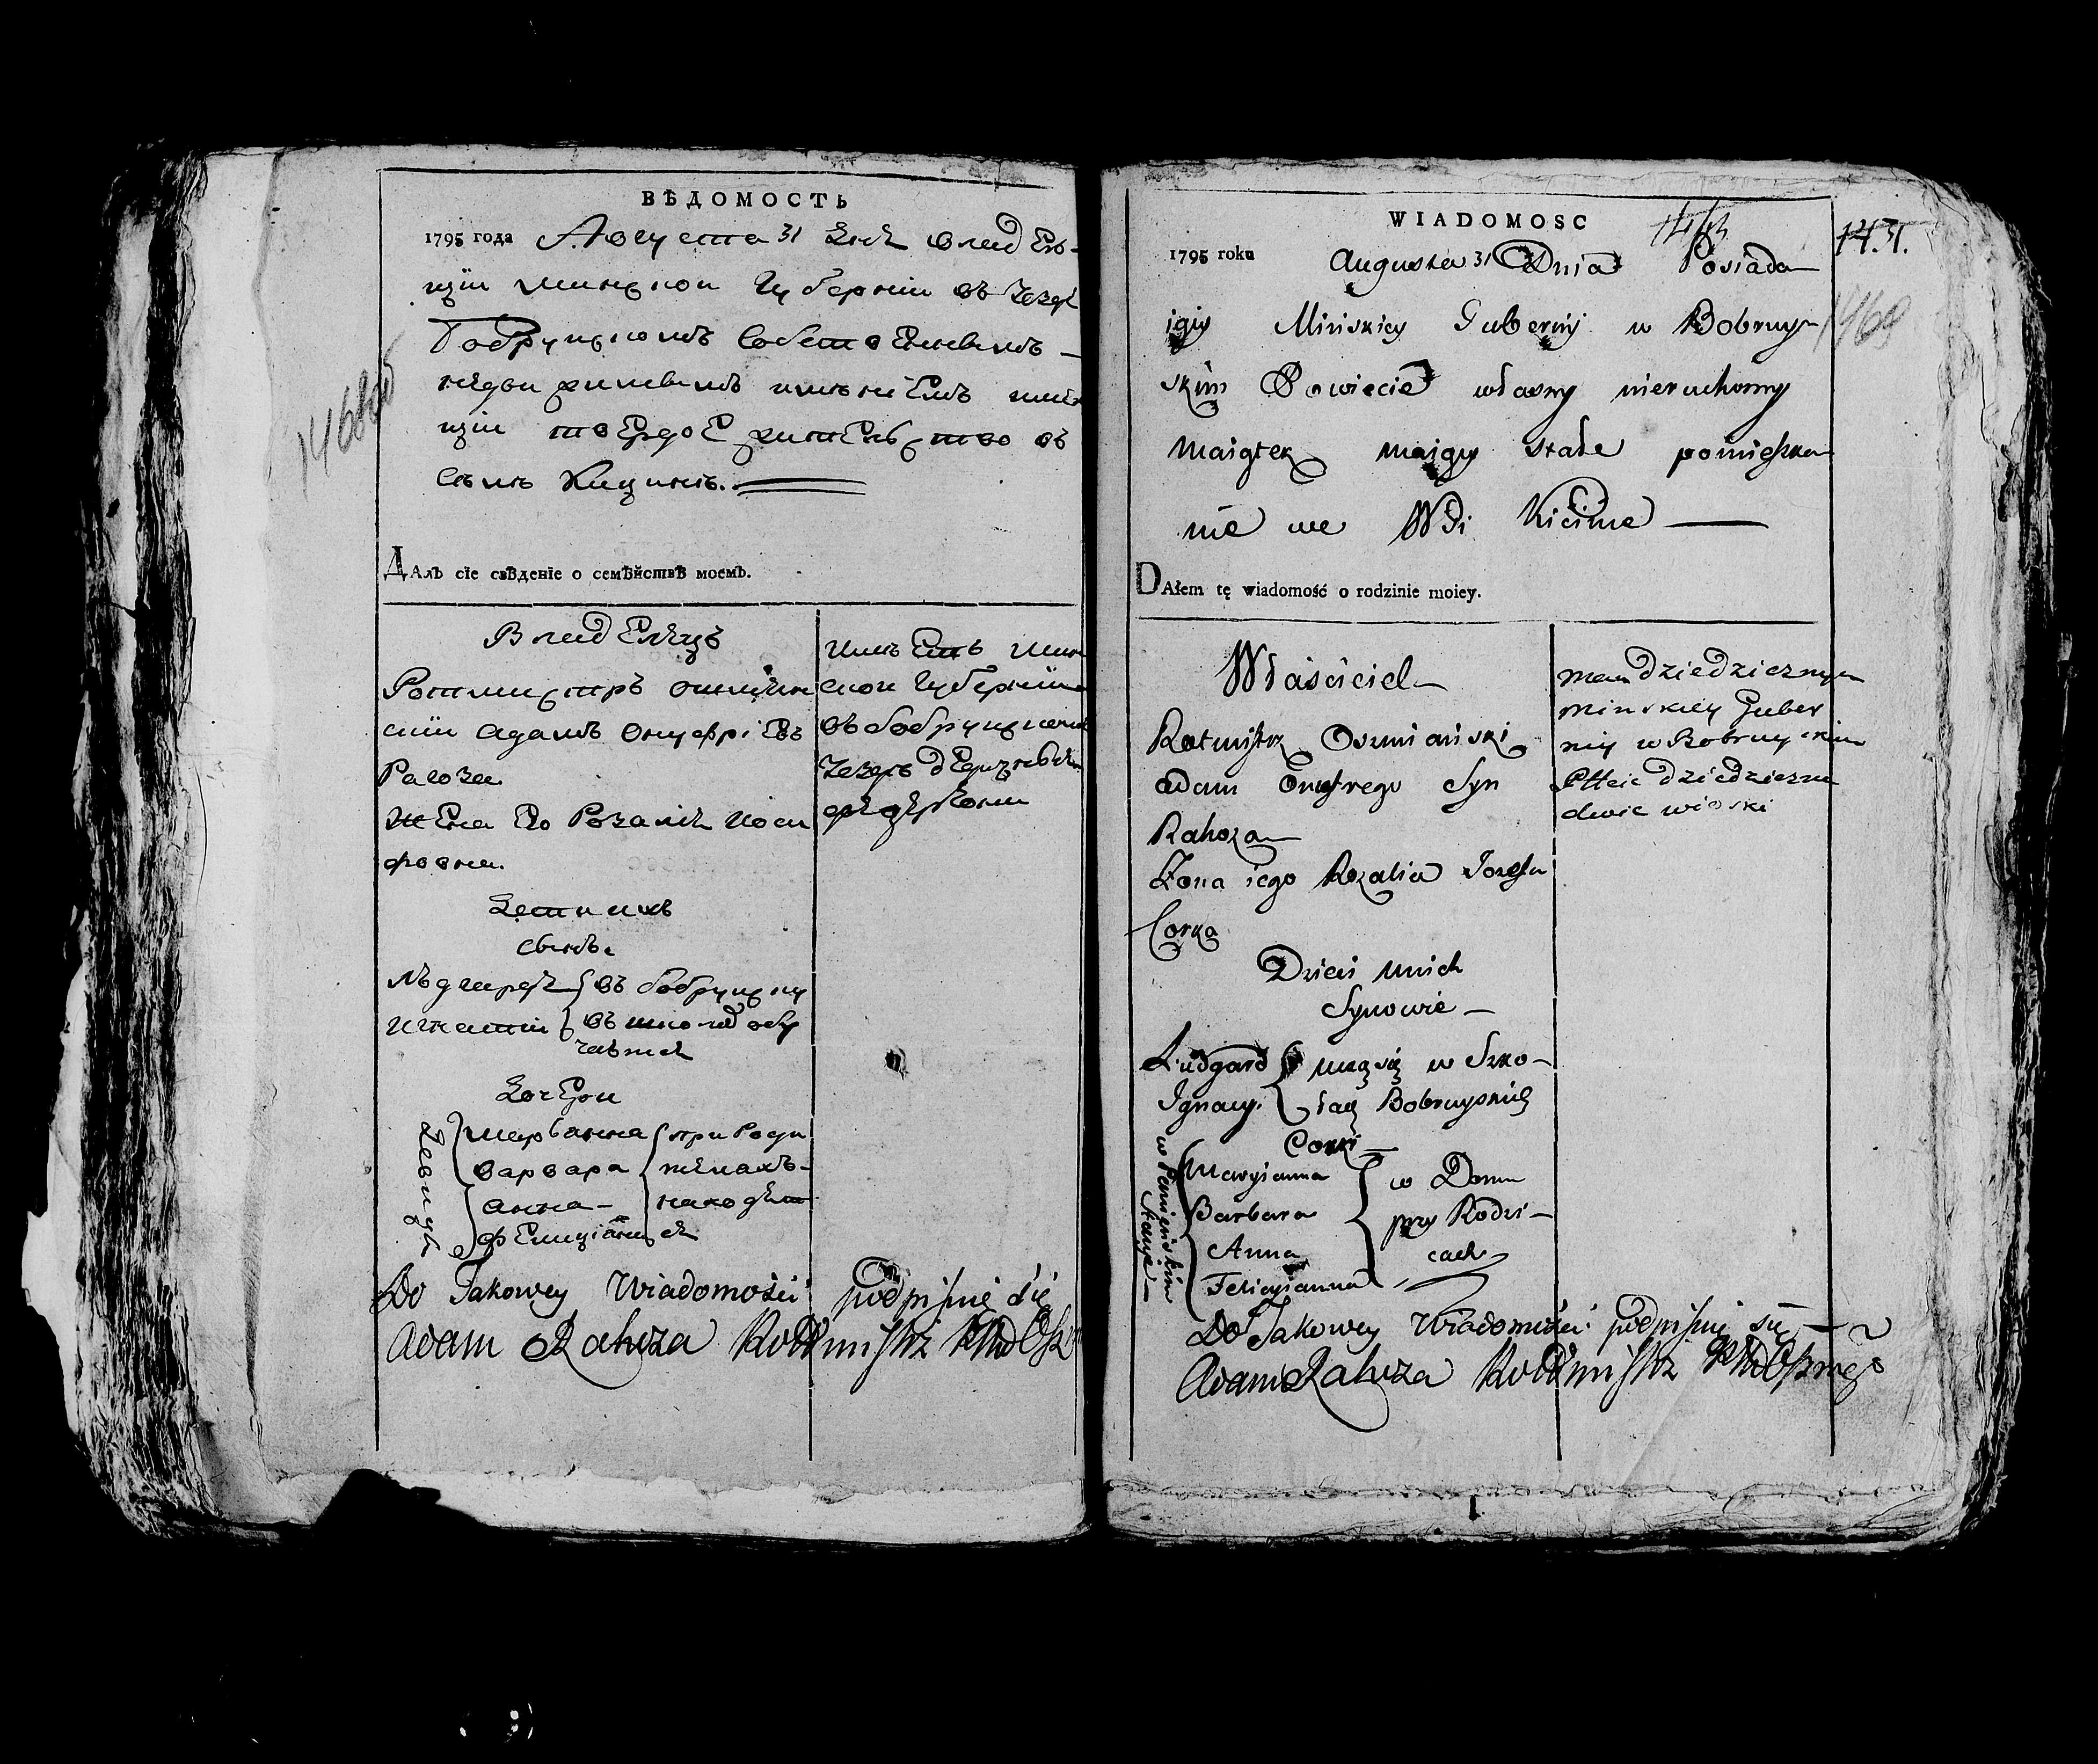 1468об
ВѢДОМОСТЬ
1795 года Августа 31 дня владею-
щій минской губерніи въ уезде
Бобруйскомъ собственнымъ
недвижимымъ имѣніемъ имею
щій твердое жительство въ
селѣ Кицинѣ.
Далъ сіе свѣденіе о семѣйствѣ моемъ.
Владелецъ
Ротмистръ ошмян
скій Адамъ Онуфріевъ
Рагоза
Жена Его Розалія Йоси
фовна
Детй ихъ
сыны
въ бобруйску
Игнатій въ школѣ обу
чаются
Дочери
Девицы
Марьанна при Роди
варвара теляхъ
анна находят
Фелиціанна ся
имѣетъ мин
ской губерніи
въ бобруйском
уезде
Do Takowey Wiadomości podpisuię się
Adam Rahoza Rottmistrz
WIADOMOSC
1443
143.
1469
1795 roku Augusta 31 Dnia Posiada
iący Minskiey Gubernij w Bobruy
skim Powiecie własny nieruchomy
Maiątek maiący stałe pomieszka
nie we Wsi Kicinie
DAłem tę wiadomość o rodzinie moiey.
Właściciel
Rotmistrz Oszmianski
Adam Onufrego Syn
Rahoza
Żona iego Rozalia Jozefa
Corka
Dzieci unich
Synowie
Ludgard uczą się w Szko-
Ignacy łach Bobruyskich
Corki
w Panieńskim Stanie
Maryianna w Domu
Barbara przy Rodzi-
Anna cach
Felicyianna
mam dziedzicznych
Minskiey Guber
nij w Bobruyskim
Pttcie dziedziczne
dwie wioski
Do Takowey Wiadomości podpisuię się
Adam Rahoza Rottmistrz